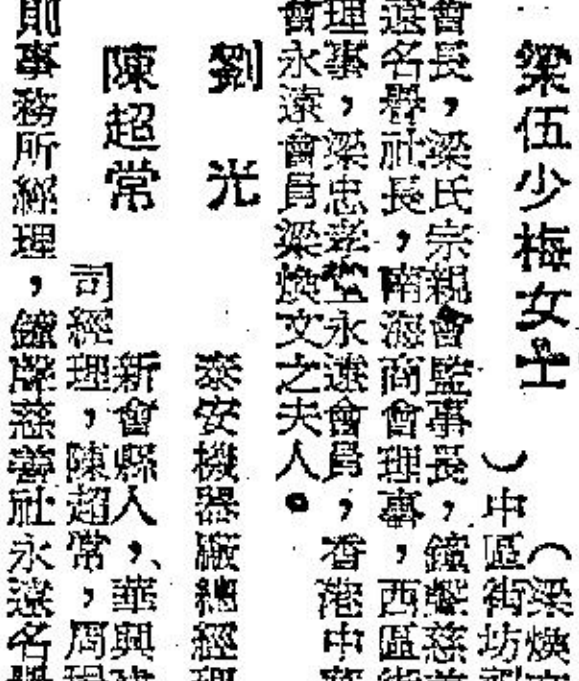 梁伍少梅女士
（梁煥文
）中區街坊副
會長，梁氏宗親會監事長，鐘聲慈善
遠名譽社長，南海商會理事，西區街
理事，梁忠孝堂永遠會員，香港中
會永遠會員梁煥文之夫人。
劉 光
泰安機器廠總經理
陳超常
新會縣人，華興建
司經理，陳超常，周
則事務所經理，鐘聲慈善社永遠名譽